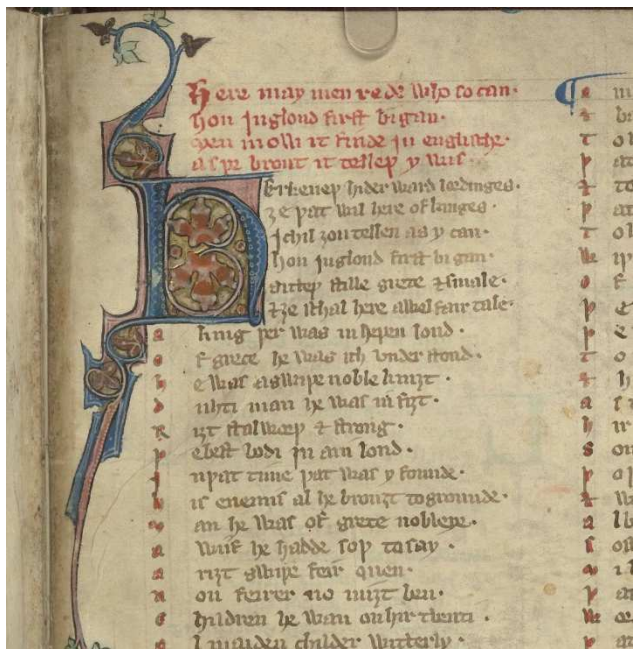 Here may men rede who so can·
hou Inglond first bigan·
Men mow it finde in englische·
as þe brout it telleþ y wis·
Herkeneþ hider ward lordinges·
ȝe þat wil here of kinges·
Ichil ȝou tellen as y can·
hou Inglond first bi gan·
Sitteþ stille grete & smale·
& ȝe schal here a wel fair tale·
a king þer was in heþen lond·
o f grece he was ich vnder stond·
h e was a swiþe noble kniȝt·
d uhti man he was in fiȝt·
R iȝt stalworþ & strong·
þ e best bodi in ani lond·
I n þat time þat was y founde·
h is enemis al he brouȝt to grounde·
m an he was of grete nobleye·
a wiif he hadde soþ to say·
a riȝt swiþe feir quen·
n on feirer no miȝt ben·
c hildren he wan on hir tventi·
a l maiden childer witterly·